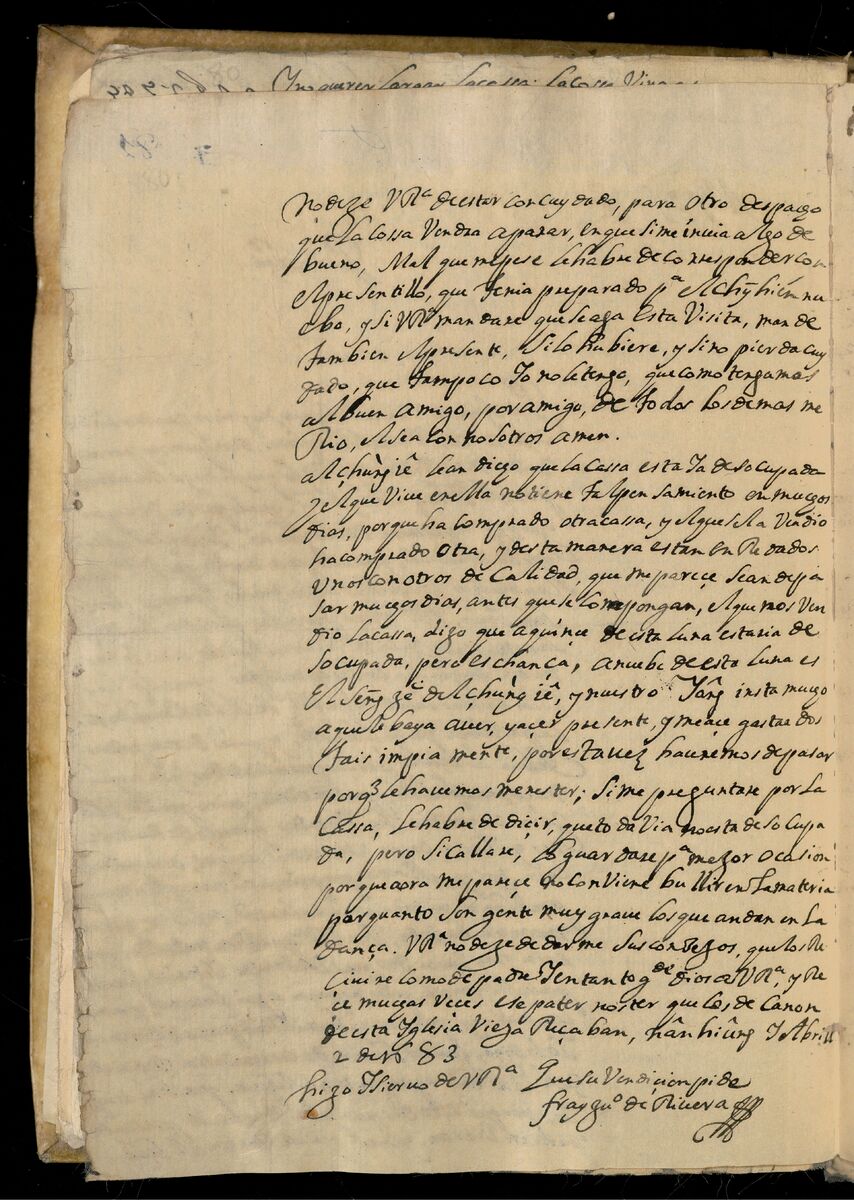 Y no querer largar la cassa. la cossa
no deze VRª de estar con cuydado, para otro despacgo
que la cossa vendra a parar, en que si me invia algo de
bueno, Mal que me pese le habre de corresponder con
el presentillo, que tenia preparado pª el chỹ hiến nu
ebo, y si VRª mandare que se aga esta Visita, mande
tambien el presente, si lo hubiere, y sino pierda cuy
dado, que tampoco Yo no le tengo, que como tengamos
al buen amigo, por amigo, de todos los demas me
Rio, el sea con nosotros amen.
al chùng iê han digo que la cassa esta Ya desocupada
y el que Vive en ella no tiene tal pensamiento en mucgos
dias, porque ha comprado otra cassa, y el que se la vendio
ha comprado otra, y desta manera estan enRedados
unos con otros de Calidad, que me parece sean de pa
sar mucgos dias, antes que se compongan, el que nos ven
dio la cassa, digo que a quince de esta luna estaria de
socupada, pero es chança, a nuebe de esta luna es
El seng ze de el chùng iê, y nuestro Yâng insta mucgo
a que le baya a ver, y acer presente, y me ace gastar dos
tais impiamente, por esta uez hauremos de pasar
porq̃ le hauemos menester; si me preguntare por la
Cassa, le habre de dicir, que toda Via no esta desocupa
da, pero si callare, lo guardare pª mezor ocasion
porque aora me parece no conviene bullir en la materia
por quanto son gente muy graue los que andan en la
dança. VRª no deze de darme sus consezos, que los Re
civire como de padre Y entanto gde dios a VRª, y Re
ce mucgas veces ese pater noster que los de Canon
de esta Yglesia Vieza Reçaban, hân hiûng Y Abrill
2 de 83
hizo Y siervo de VRª Que su Vendicion pide
fray Juº de Rivera